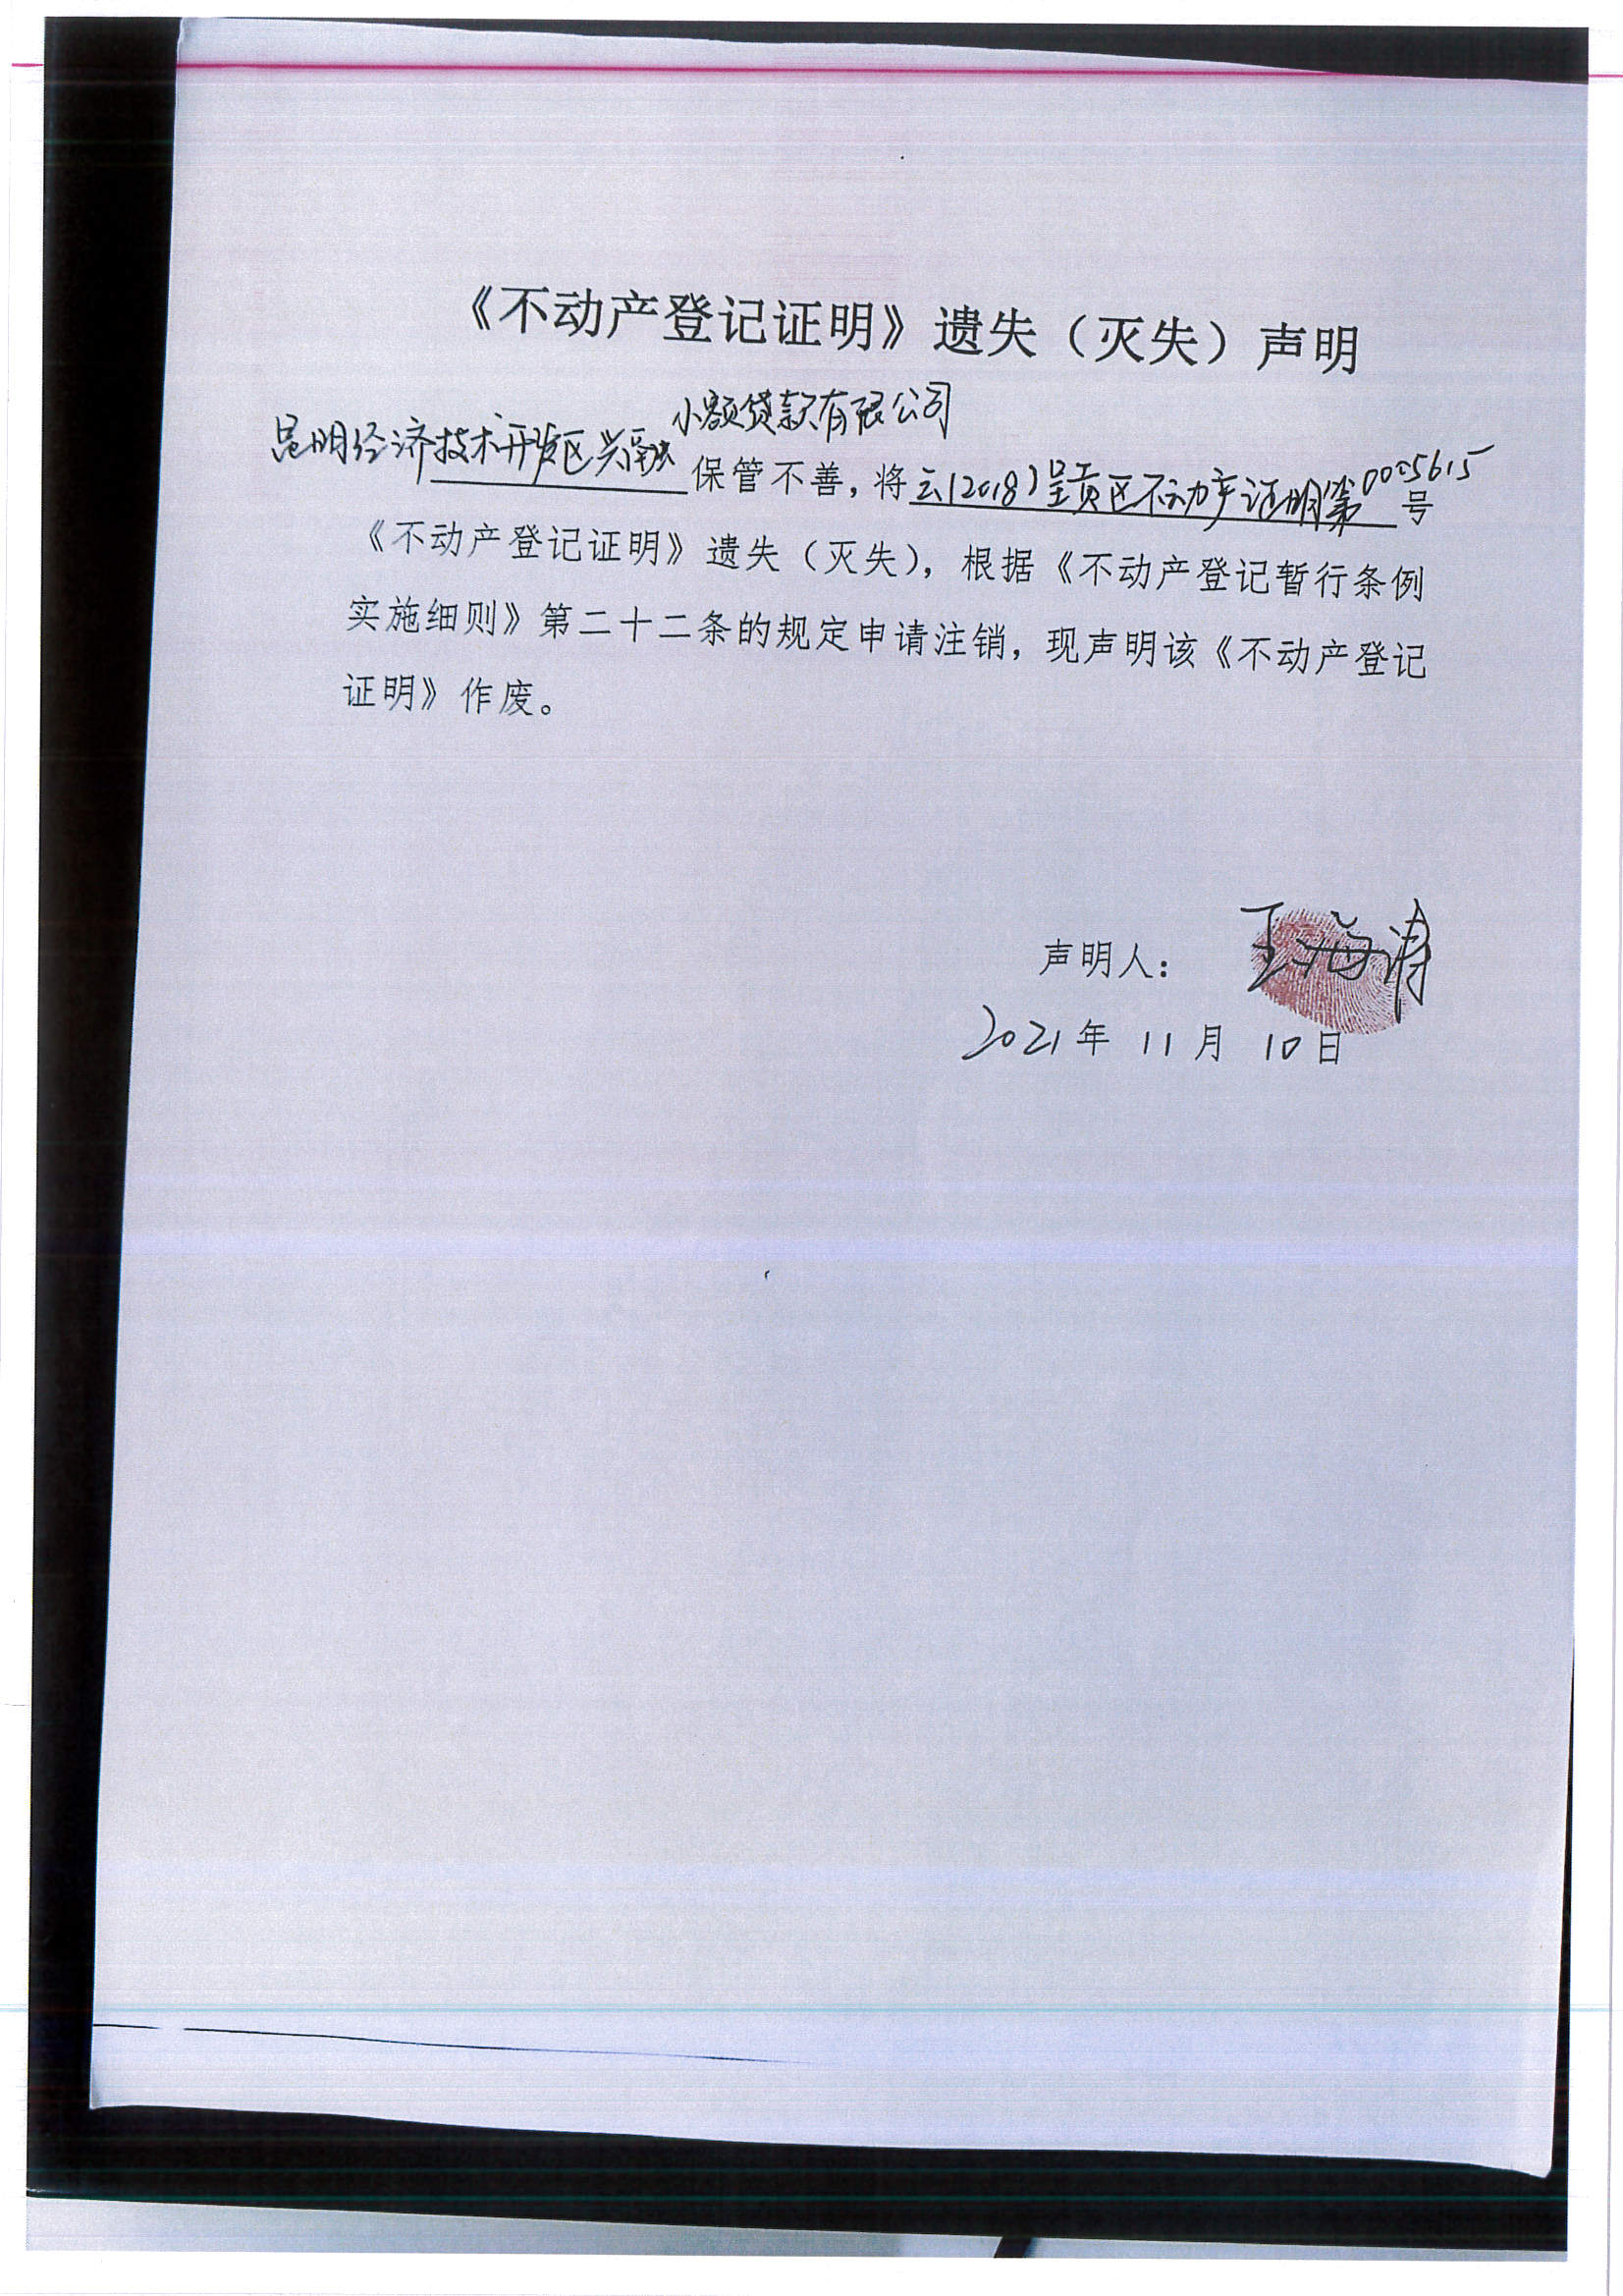 《不动产登记证明》遗失（灭失）声明
小额贷款有限公司
昆明经济技术开发区兴融保管不善，将云(2018)呈贡区不动产证明第0005615号
《不动产登记证明》遗失（灭失），根据《不动产登记暂行条例
实施细则》第二十二条的规定申请注销，现声明该《不动产登记
证明》作废。
声明人：王海涛
2021年 11月 10日